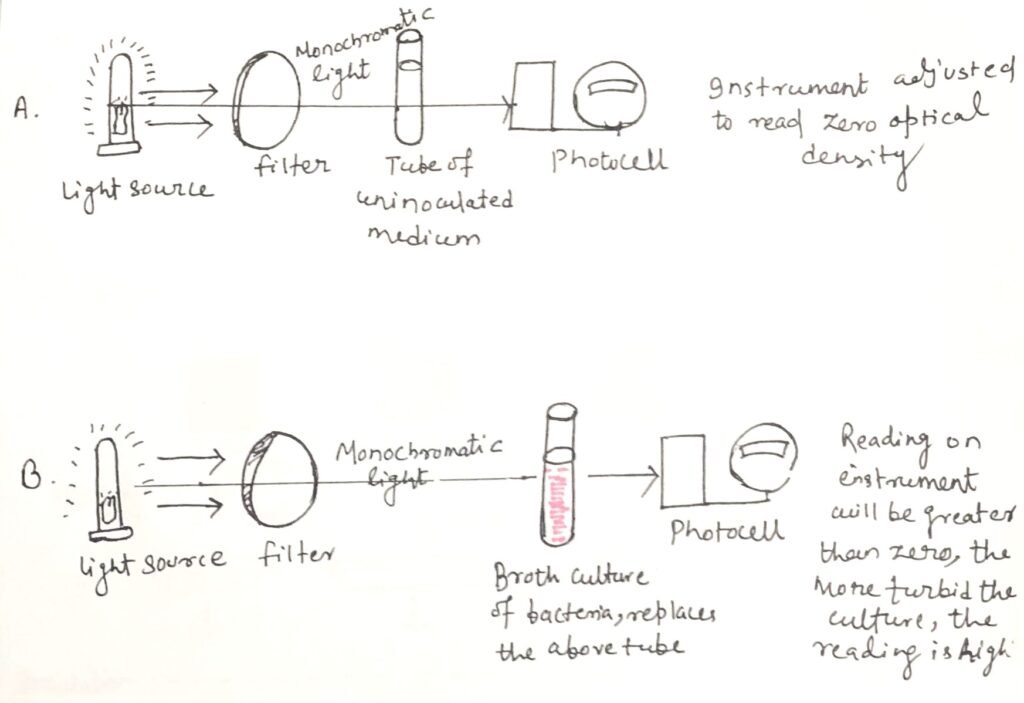 A.
Monochromatic
light
light source
filter
Tube of
uninoculated
medium
Photocell
Instrument adjusted
to read zero optical
density
B.
Monochromatic
light
light source
filter
Broth culture
of bacteria, replaces
the above tube
Photocell
Reading on
instrument
will be greater
than zero, the
More turbid the
culture, the
reading is high